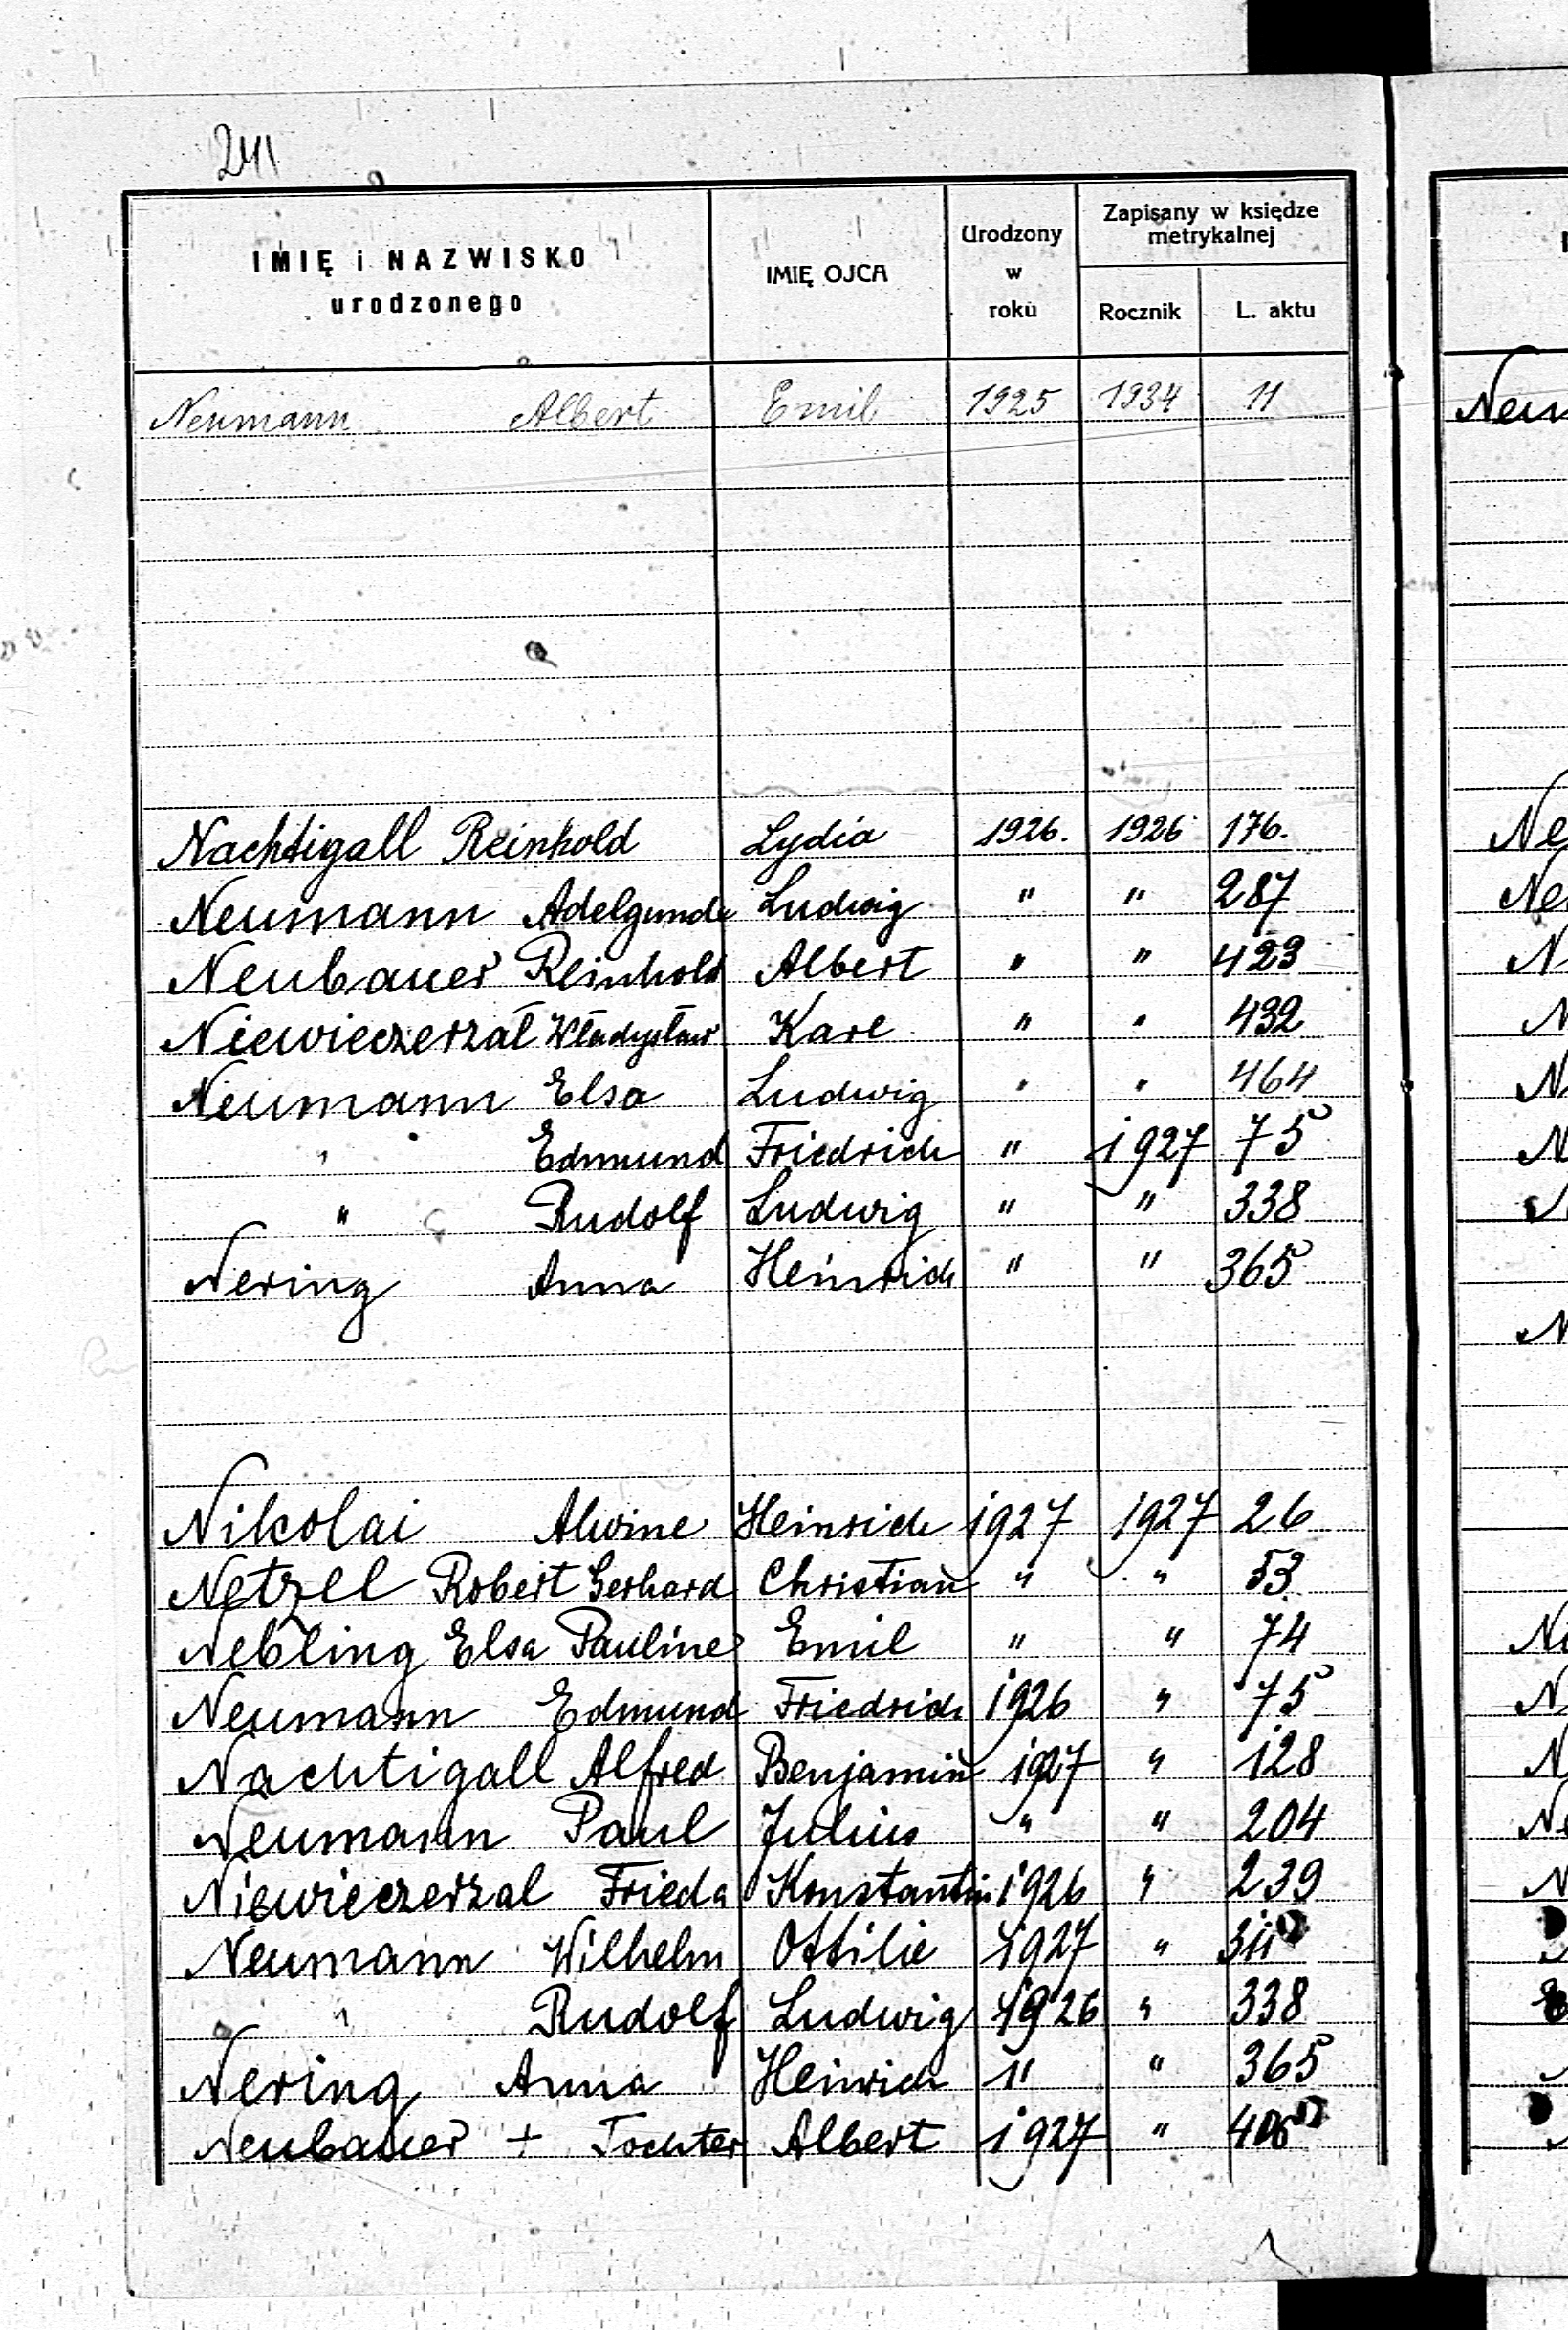 241
IMIĘ i NAZWISKO
urodzonego
IMIĘ OJCA
Urodzony
w
roku
Zapisany w księdze
metrykalnej
Rocznik L. aktu
Neumann Albert Emil 1925 1934 11
Nachtigall Reinhold Lydia 1926. 1926 176.
Neumann Adelgunde Ludwig " " 287
Neubauer Reinhold Albert " " 423
Niewieczerzał Władysław Karl " " 432
Neumann Elsa Ludwig " " 464
" Edmund Friedrich " 1927 75
" Rudolf Ludwig " " 338
Nering Anna Heinrich " " 365
Nikolai Alwine Heinrich 1927 1927 26
Netzel Robert Gerhard Christian " " 53.
Nebling Elsa Pauline Emil " " 74
Neumann Edmund Friedrich 1926 " 75
Nachtigall Alfred Benjamin 1927 " 128
Neumann Paul Julius " " 204
Niewieczerzal Frieda Konstantin 1926 " 239
Neumann Wilhelm Ottilie 1927 " 311
" Rudolf Ludwig 1926 " 338
Nering Anna Heinrich " " 365
Neubauer + Tochter Albert 1927 "